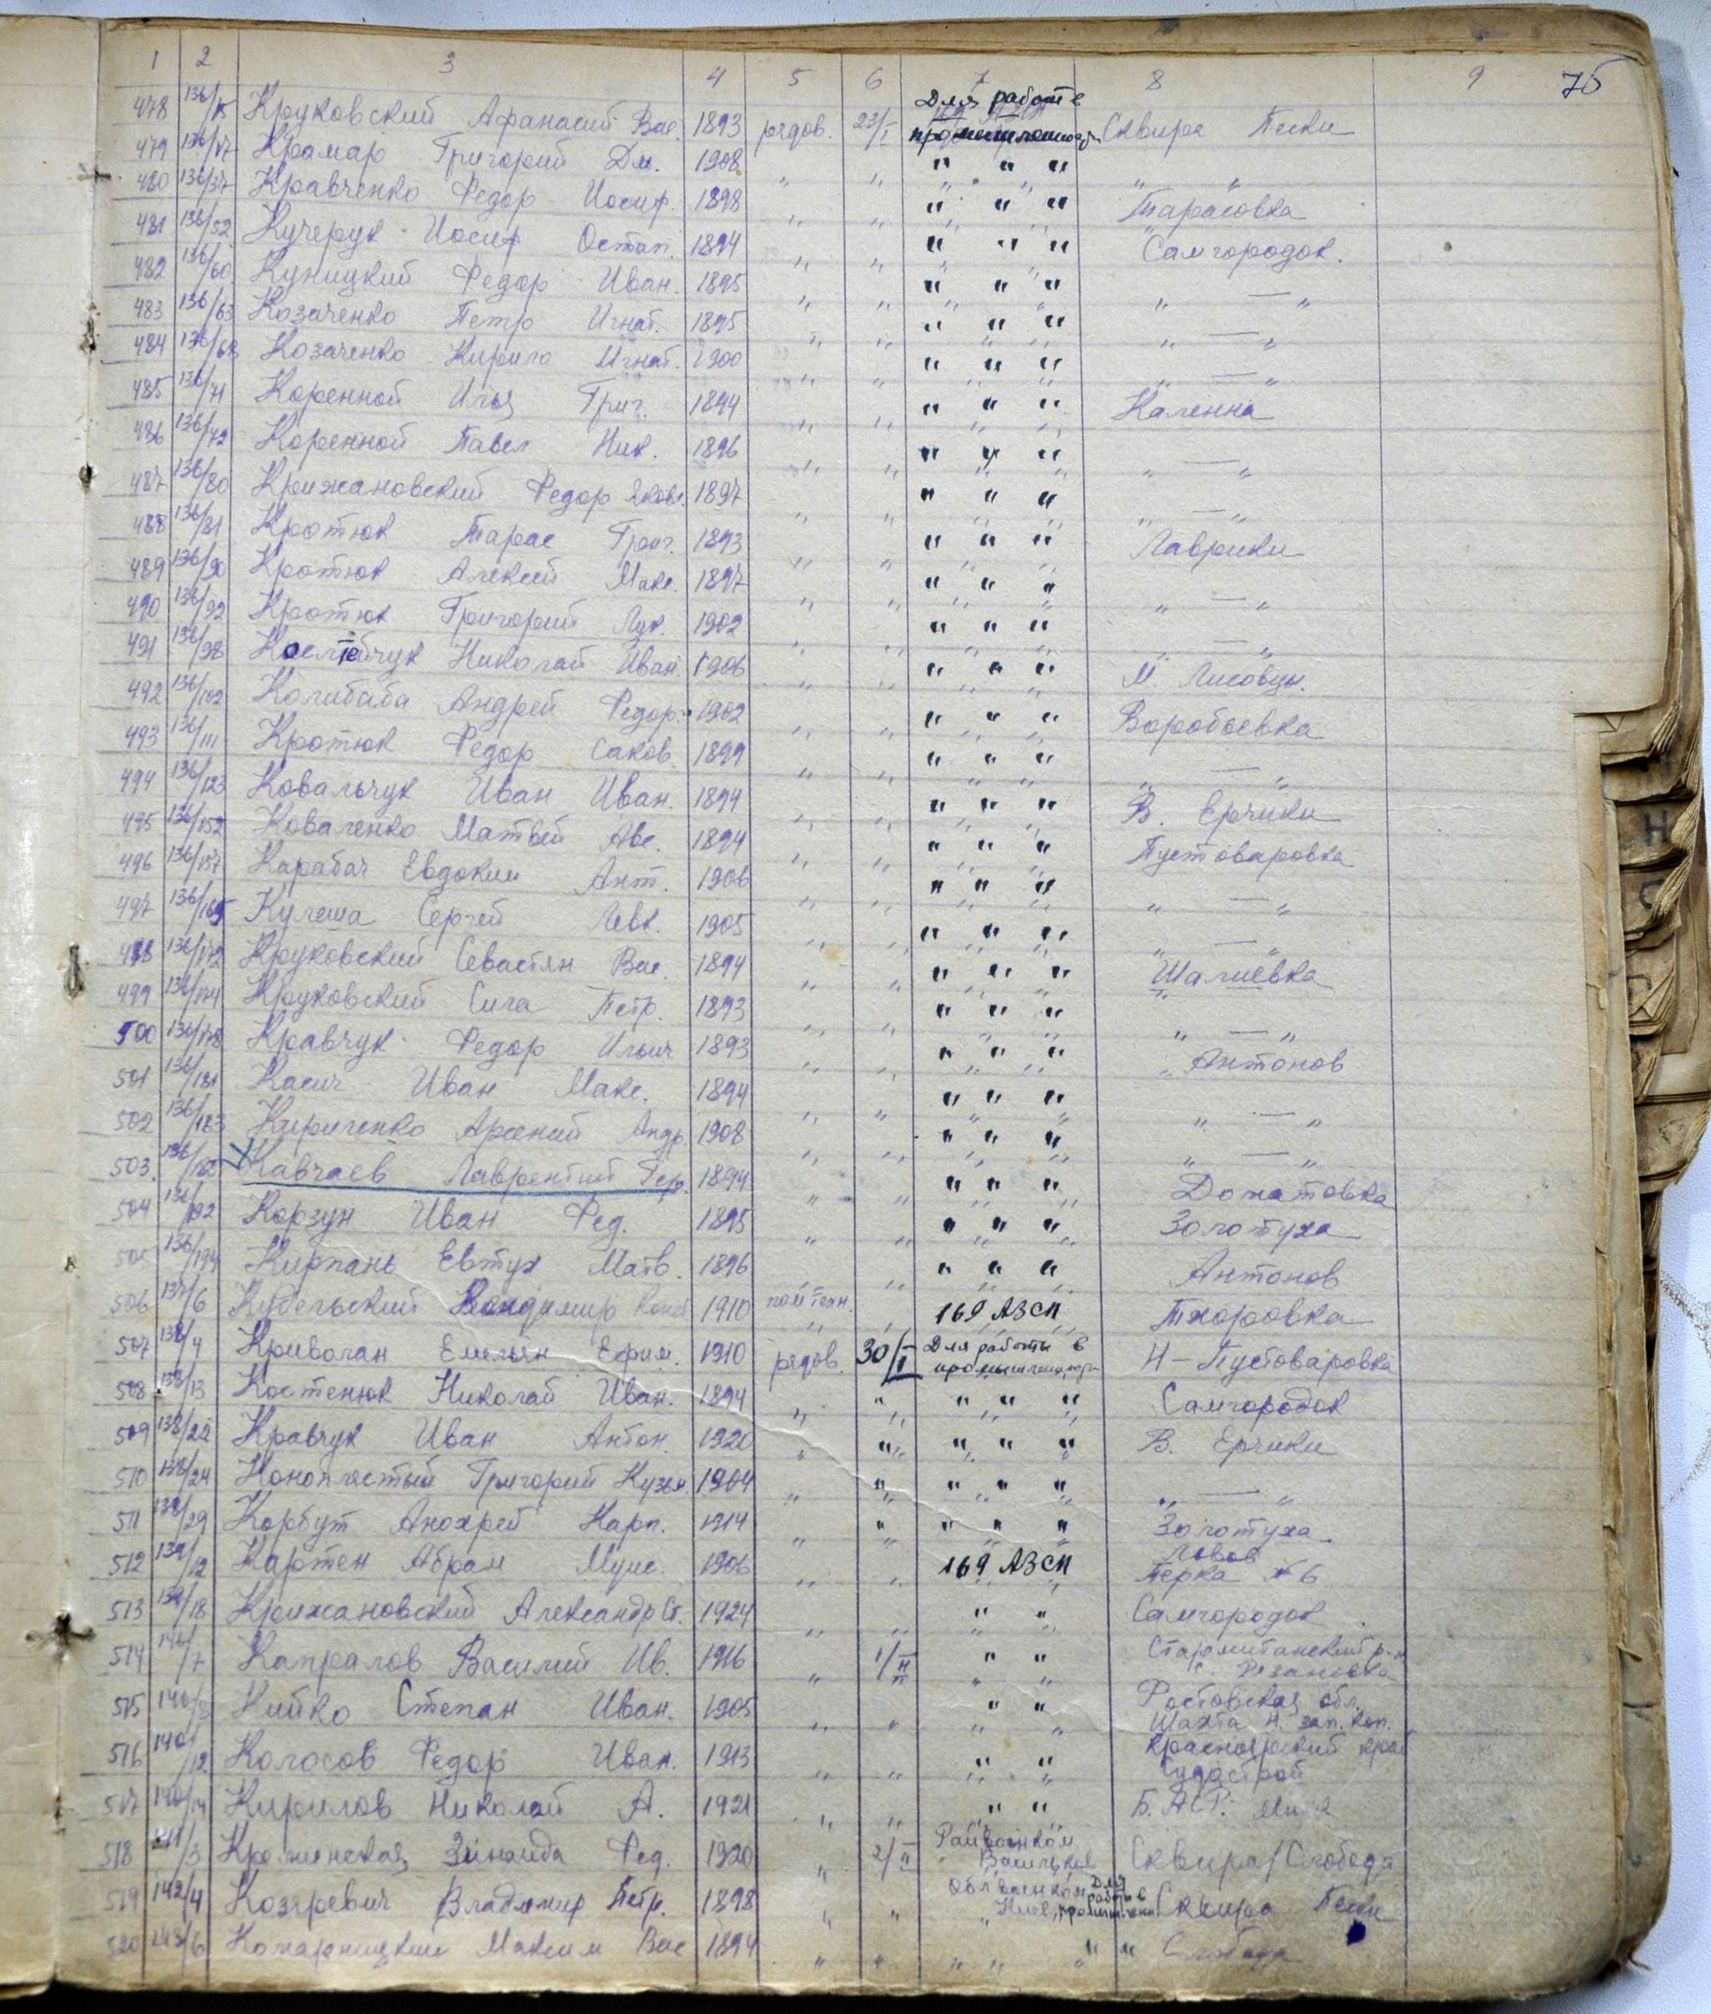 1 2 3 4 5 6 7 8 9 75
478 136/15 Круковский Афанасий Вас. 1893 рядов. 23/I Для работ в промышленности Сквира Пески
479 136/17 Крамар Григорий Дм. 1908 " " " " " " "
480 136/37 Кравченко Федор Иосиф. 1898 " " " " " Тарасовка
481 136/52 Кучерук Иосиф Остап. 1894 " " " " " Самгородок.
482 136/60 Куницкий Федор Иван. 1895 " " " " " " — "
483 136/63 Козаченко Петр Игнат. 1895 " " " " " " — "
484 136/68 Козаченко Кирило Игнат. 1900 " " " " " " — "
485 136/71 Коренной Илья Григ. 1894 " " " " " Каленна
486 136/72 Коренной Павел Ник. 1896 " " " " " " — "
487 136/80 Крижановский Федор Яковл. 1897 " " " " " " — "
488 136/81 Кротюк Тарас Григ. 1893 " " " " " Лаврики
489 136/90 Кротюк Алексей Макс. 1897 " " " " " " — "
490 136/92 Кротюк Григорий Лук. 1902 " " " " " " — "
491 136/98 Николай Иван. 1906 " " " " " М. Лисовцы.
492 136/102 Колибаба Андрей Федор. 1902 " " " " " Воробьевка
493 136/111 Кротюк Федор Саков. 1899 " " " " " " — "
494 136/123 Ковальчук Иван Иван. 1894 " " " " " В. Ерчики
495 136/152 Коваленко Матвей Авс. 1894 " " " " " Пустоваровка
496 136/157 Карабач Евдоким Ант. 1906 " " " " " " — "
497 136/165 Кулеша Сергей Левк. 1905 " " " " " " — "
498 136/172 Круковский Севастян Вас. 1894 " " " " " Шалиевка
499 136/174 Круковский Сила Петр. 1893 " " " " " " — "
500 136/178 Кравчук Федор Ильич 1893 " " " " " Антонов
501 136/181 Касич Иван Макс. 1894 " " " " " " — "
502 136/183 Кириченко Арсений Андр. 1908 " " " " " " — "
503. 136/ Кавчаев Лаврентий 1894 " " " " " Домантовка
504 136/192 Корзун Иван Фед. 1895 " " " " " Золотуха
505 136/194 Кирпань Евтух Матв. 1896 " " " " " Антонов
506 137/6 Кубельский Владимир Конст 1910 пом техн. " 169 АЗСП Тхоровка
507 138/4 Криволап Емельян Ефим. 1910 рядов. 30/I Для работы в промышленности Н-Пустоваровка
508 138/13 Костенюк Николай Иван. 1894 " " " " " Самгородок
509 138/22 Кравчук Иван Антон. 1920 " " " " " В. Ерчики
510 138/24 Коноплястый Григорий Кузьм 1904 " " " " " " — "
511 138/29 Корбут Анохрей Карп. 1914 " " " " " Золотуха
512 139/12 Картен Абрам Муис. 1906 " " 169 АЗСП Львов
Перка № 6
513 139/18 Крижановский Александр Ст. 1924 " " " " Самгородок
514 140/7 Капралов Василий Ив. 1916 " 1/II " " р-н
с. Рязановка
515 140/ Кийко Степан Иван. 1905 " " " " Ростовская обл.
Шахта зап. коп.
516 140/12 Колосов Федор Иван. 1913 " " " " Красноярский край
Судострой
517 140/14 Кирилов Николай А. 1921 " " " "
518 141/3 Зинаида Фед. 1920 " 2/II Райвоенком
Васильков Сквира/Слобода
519 142/4 Козяревич Владимир Петр. 1898 " " Облвоенком
Киев, Для работы в промышлен Сквира Пески
520 143/6 Комарницкий Максим Вас 1894 " " " " " " Слобода